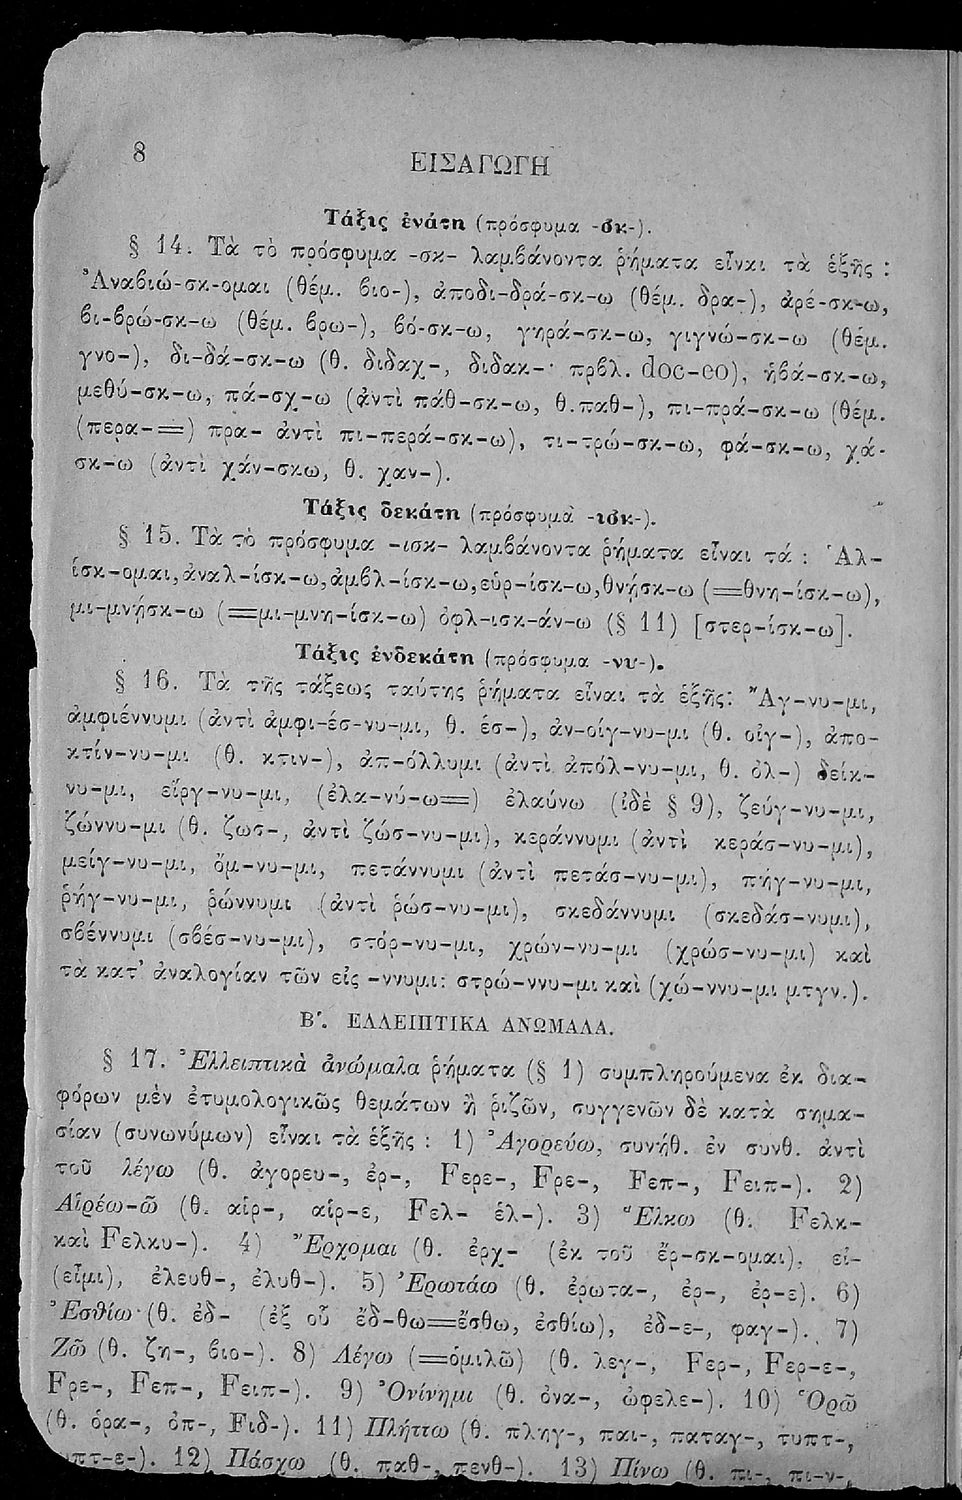 8
ΕΙΣΑΓΩΓΗ
Τάξις ἐνάτη (πρόσφυμα -σκ-).
§ 14. Τὰ τὸ πρόσφυμα -σκ- λαμβάνοντα ῥήματα εἶναι τὰ ἑξῆς :
Ἀναβιώ-σκ-ομαι (θέμ. βιο-), ἀποδι-δρά-σκ-ω (θέμ. δρα-), ἀρέ-σκ-ω,
βι-βρώ-σκ-ω (θέμ. βρω-), βό-σκ-ω, γηρά-σκ-ω, γιγνώ-σκ-ω (θέμ.
γνο-), δι-δά-σκ-ω (θ. διδαχ-, διδακ-· πρβλ. doc-eo), ἡβά-σκ-ω,
μεθύ-σκ-ω, πά-σχ-ω (ἀντὶ πάθ-σκ-ω, θ. παθ-), πι-πρά-σκ-ω (θέμ.
(περα-=) πρα- ἀντὶ πι-περά-σκ-ω), τι-τρώ-σκ-ω, φά-σκ-ω, χά-
σκ-ω (ἀντὶ χάν-σκω, θ. χαν-).
Τάξις δεκάτη (πρόσφυμα -ισκ-).
§ 15. Τὰ τὸ πρόσφυμα -ισκ- λαμβάνοντα ῥήματα εἶναι τά : Ἁλ-
ίσκ-ομαι, ἀναλ-ίσκ-ω, ἀμβλ-ίσκ-ω, εὑρ-ίσκ-ω, θνήσκ-ω (=θνη-ίσκ-ω),
μι-μνήσκ-ω (=μι-μνη-ίσκ-ω) ὀφλ-ισκ-άν-ω (§ 11) [στερ-ίσκ-ω].
Τάξις ἑνδεκάτη (πρόσφυμα -νυ-).
§ 16. Τὰ τῆς τάξεως ταύτης ῥήματα εἶναι τὰ ἑξῆς: Ἄγ-νυ-μι,
ἀμφιέννυμι (ἀντὶ ἀμφι-έσ-νυ-μι, θ. ἑσ-), ἀν-οίγ-νυ-μι (θ. οἰγ-), ἀπο-
κτίν-νυ-μι (θ. κτιν-), ἀπ-όλλυμι (ἀντὶ ἀπόλ-νυ-μι, θ. ὀλ-) δείκ-
νυ-μι, εἵργ-νυ-μι, (ἐλα-νύ-ω=) ἐλαύνω (ἰδὲ § 9), ζεύγ-νυ-μι,
ζώννυ-μι (θ. ζωσ-, ἀντὶ ζώσ-νυ-μι), κεράννυμι (ἀντὶ κεράσ-νυ-μι),
μείγ-νυ-μι, ὄμ-νυ-μι, πετάννυμι (ἀντὶ πετάσ-νυ-μι), πήγ-νυ-μι,
ῥήγ-νυ-μι, ῥώννυμι (ἀντὶ ῥώσ-νυ-μι), σκεδάννυμι (σκεδάσ-νυμι),
σβέννυμι (σβέσ-νυ-μι), στόρ-νυ-μι, χρών-νυ-μι (χρώσ-νυ-μι) καὶ
τὰ κατ' ἀναλογίαν τῶν εἰς -ννυμι: στρώ-ννυ-μι καὶ (χώ-ννυ-μι μτγν.).
Β'. ΕΛΛΕΙΠΤΙΚΑ ΑΝΩΜΑΛΑ.
§ 17. Ἐλλειπτικὰ ἀνώμαλα ῥήματα (§ 1) συμπληρούμενα ἐκ δια-
φόρων μὲν ἐτυμολογικῶς θεμάτων ἢ ῥιζῶν, συγγενῶν δὲ κατὰ σημα-
σίαν (συνωνύμων) εἶναι τὰ ἑξῆς : 1) Ἀγορεύω, συνήθ. ἐν συνθ. ἀντὶ
τοῦ λέγω (θ. ἀγορευ-, ἐρ-, Ϝερε-, Ϝρε-, Ϝεπ-, Ϝειπ-). 2)
Αἱρέω-ῶ (θ. αἱρ-, αἱρ-ε, Ϝελ- ἑλ-). 3) Ἕλκω (θ. Ϝελκ-
καὶ Ϝελκυ-). 4) Ἔρχομαι (θ. ἐρχ- (ἐκ τοῦ ἔρ-σκ-ομαι), εἰ-
(εἶμι), ἐλευθ-, ἐλυθ-). 5) Ἐρωτάω (θ. ἐρωτα-, ἐρ-, ἐρ-ε). 6)
Ἐσθίω (θ. ἐδ- (ἐξ οὗ ἔδ-θω=ἔσθω, ἐσθίω), ἐδ-ε-, φαγ-). 7)
Ζῶ (θ. ζη-, βιο-). 8) Λέγω (=ὁμιλῶ) (θ. λεγ-, Ϝερ-, Ϝερ-ε-,
Ϝρε-, Ϝεπ-, Ϝειπ-). 9) Ὀνίνημι (θ. ὀνα-, ὠφελε-). 10) Ὁρῶ
(θ. ὁρα-, ὀπ-, Ϝιδ-). 11) Πλήττω (θ. πληγ-, παι-, παταγ-, τυπτ-,
πτ-ε-). 12) Πάσχω (θ. παθ-, πενθ-). 13) Πίνω (θ. πι-, πι-ν-,